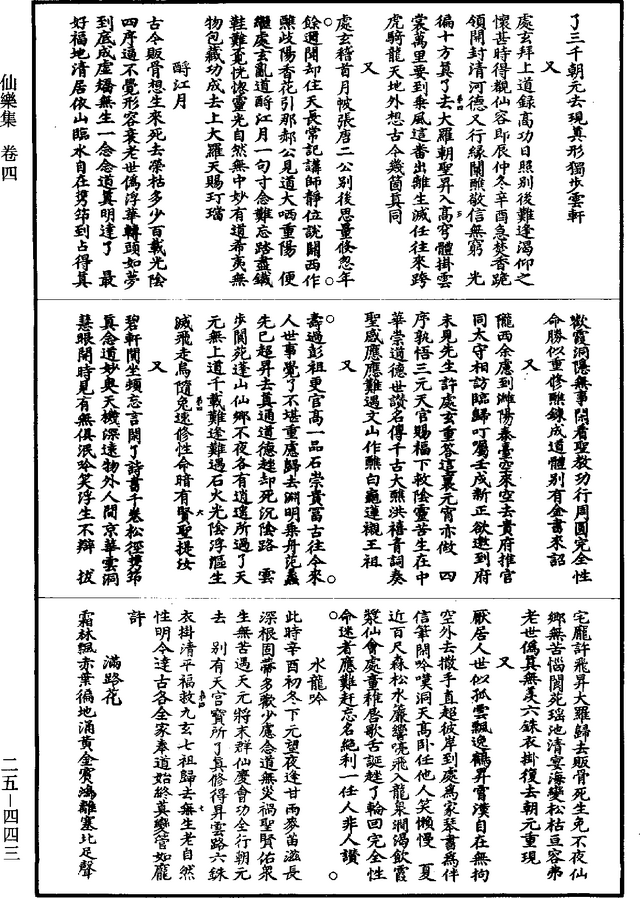 了三千朝元去現真形獨步雲軒
又
處玄拜上道録高功日照別後難逢渴仰之
懷甚時得覩仙容即辰仲冬辛酉急焚香跪
領開封清河德又行緣闡瞧敬信無窮 光
徧十方真了去大羅朝聖昇入高穹體掛雲
裳萬里要到乘風這畨出離生滅任往來跨
虎騎龍天地外想古今幾箇真同
又
處玄稽首月帔張唐二公別後思量倏忽年
餘迴闕却住天長常記講師靜位說闗西作
醮歧陽香花引那郝公見道大哂重陽 便
繼處玄亂道酹江月一句寸念難忘踏盡鐵
鞋難覔恍惚靈光自然無中妙有道希夷無
物包藏功成去上大羅天賜玎璫
酹江月
古今販骨想生來死去榮枯多少百載光陰
四序逼不覺形容衰老世偽浮華轉頭如夢
到底成虛矯無生一念念道真明達了 最
好福地清居依山臨水自在携筇到占得真
歡霞洞隱無事閑看聖教功行周圓完全性
命勝似重修醮錬成道體別有金書來詔
又
隴西余應到濰陽泰臺空來空去貴府推官
同太守相訪臨歸叮囑壬戌新正欲邀到府
未見先生許處玄重荅這裏元宵亦做 四
序孰悟三元天官賜福下救陰靈苦生在中
華崇道德世讃名傳千古大醮洪禧青詞奏
聖感應應難遇文山作醮白龜蓮襯王祖
又
壽過彭祖更官高一品石崇貴冨古往今來
人世事覺了不堪重慮歸去淵明乗舟范蠡
先已超昇去真通道德越却死沉陰路 雲
步閬苑蓬山仙鄉不夜各有逍遥所過了天
元無上道千載難逢難遇石火光陰浮漚生
滅飛走烏隨兔速修性命暗有賢聖提汝
又
碧軒閑坐頌忘言閑了詩書千卷松徑携筇
真念道妙奥天機深遠物外人間京華雲洞
慧眼開時見有無俱泯呤笑浮生不辯 拔
宅龐許飛昇大羅歸去販骨死生免不夜仙
鄉無苦惱閬苑瑶池清宴海變松枯亘容弗
老世僞真無羙六銖衣掛復去朝元重現
又
厭居人世似孤雲飄逸鶴昇霄漢自在無拘
空外去撒手直超彼岸到處爲家琴書爲伴
信筆閑吟嘆洞天高卧任他人笑懶慢 夏
近百尺森松水簾響亮飛入龍泉澗渴飲霞
漿仙會處重稚唇歌舌誕越了輪回完全性
命迷者應難赶忘名絶利一任人非人讃
水龍吟
此時辛酉初冬下元望夜逢甘雨麥苗滋長
深根固蔕多歡少慮念道無災禍聖賢佑衆
生無苦遇天元將末群仙慶會功全行朝元
去 別有天宮寳所了真修得昇雲路六銖
衣掛清平福救九玄七祖歸去無生老自然
性明今達古各全家奉道始終真變管如龐
許
滿路花
霜林飄赤葉徧地涌黄金賓鴻離塞北足聲
仙樂集 卷四
二五—四四三